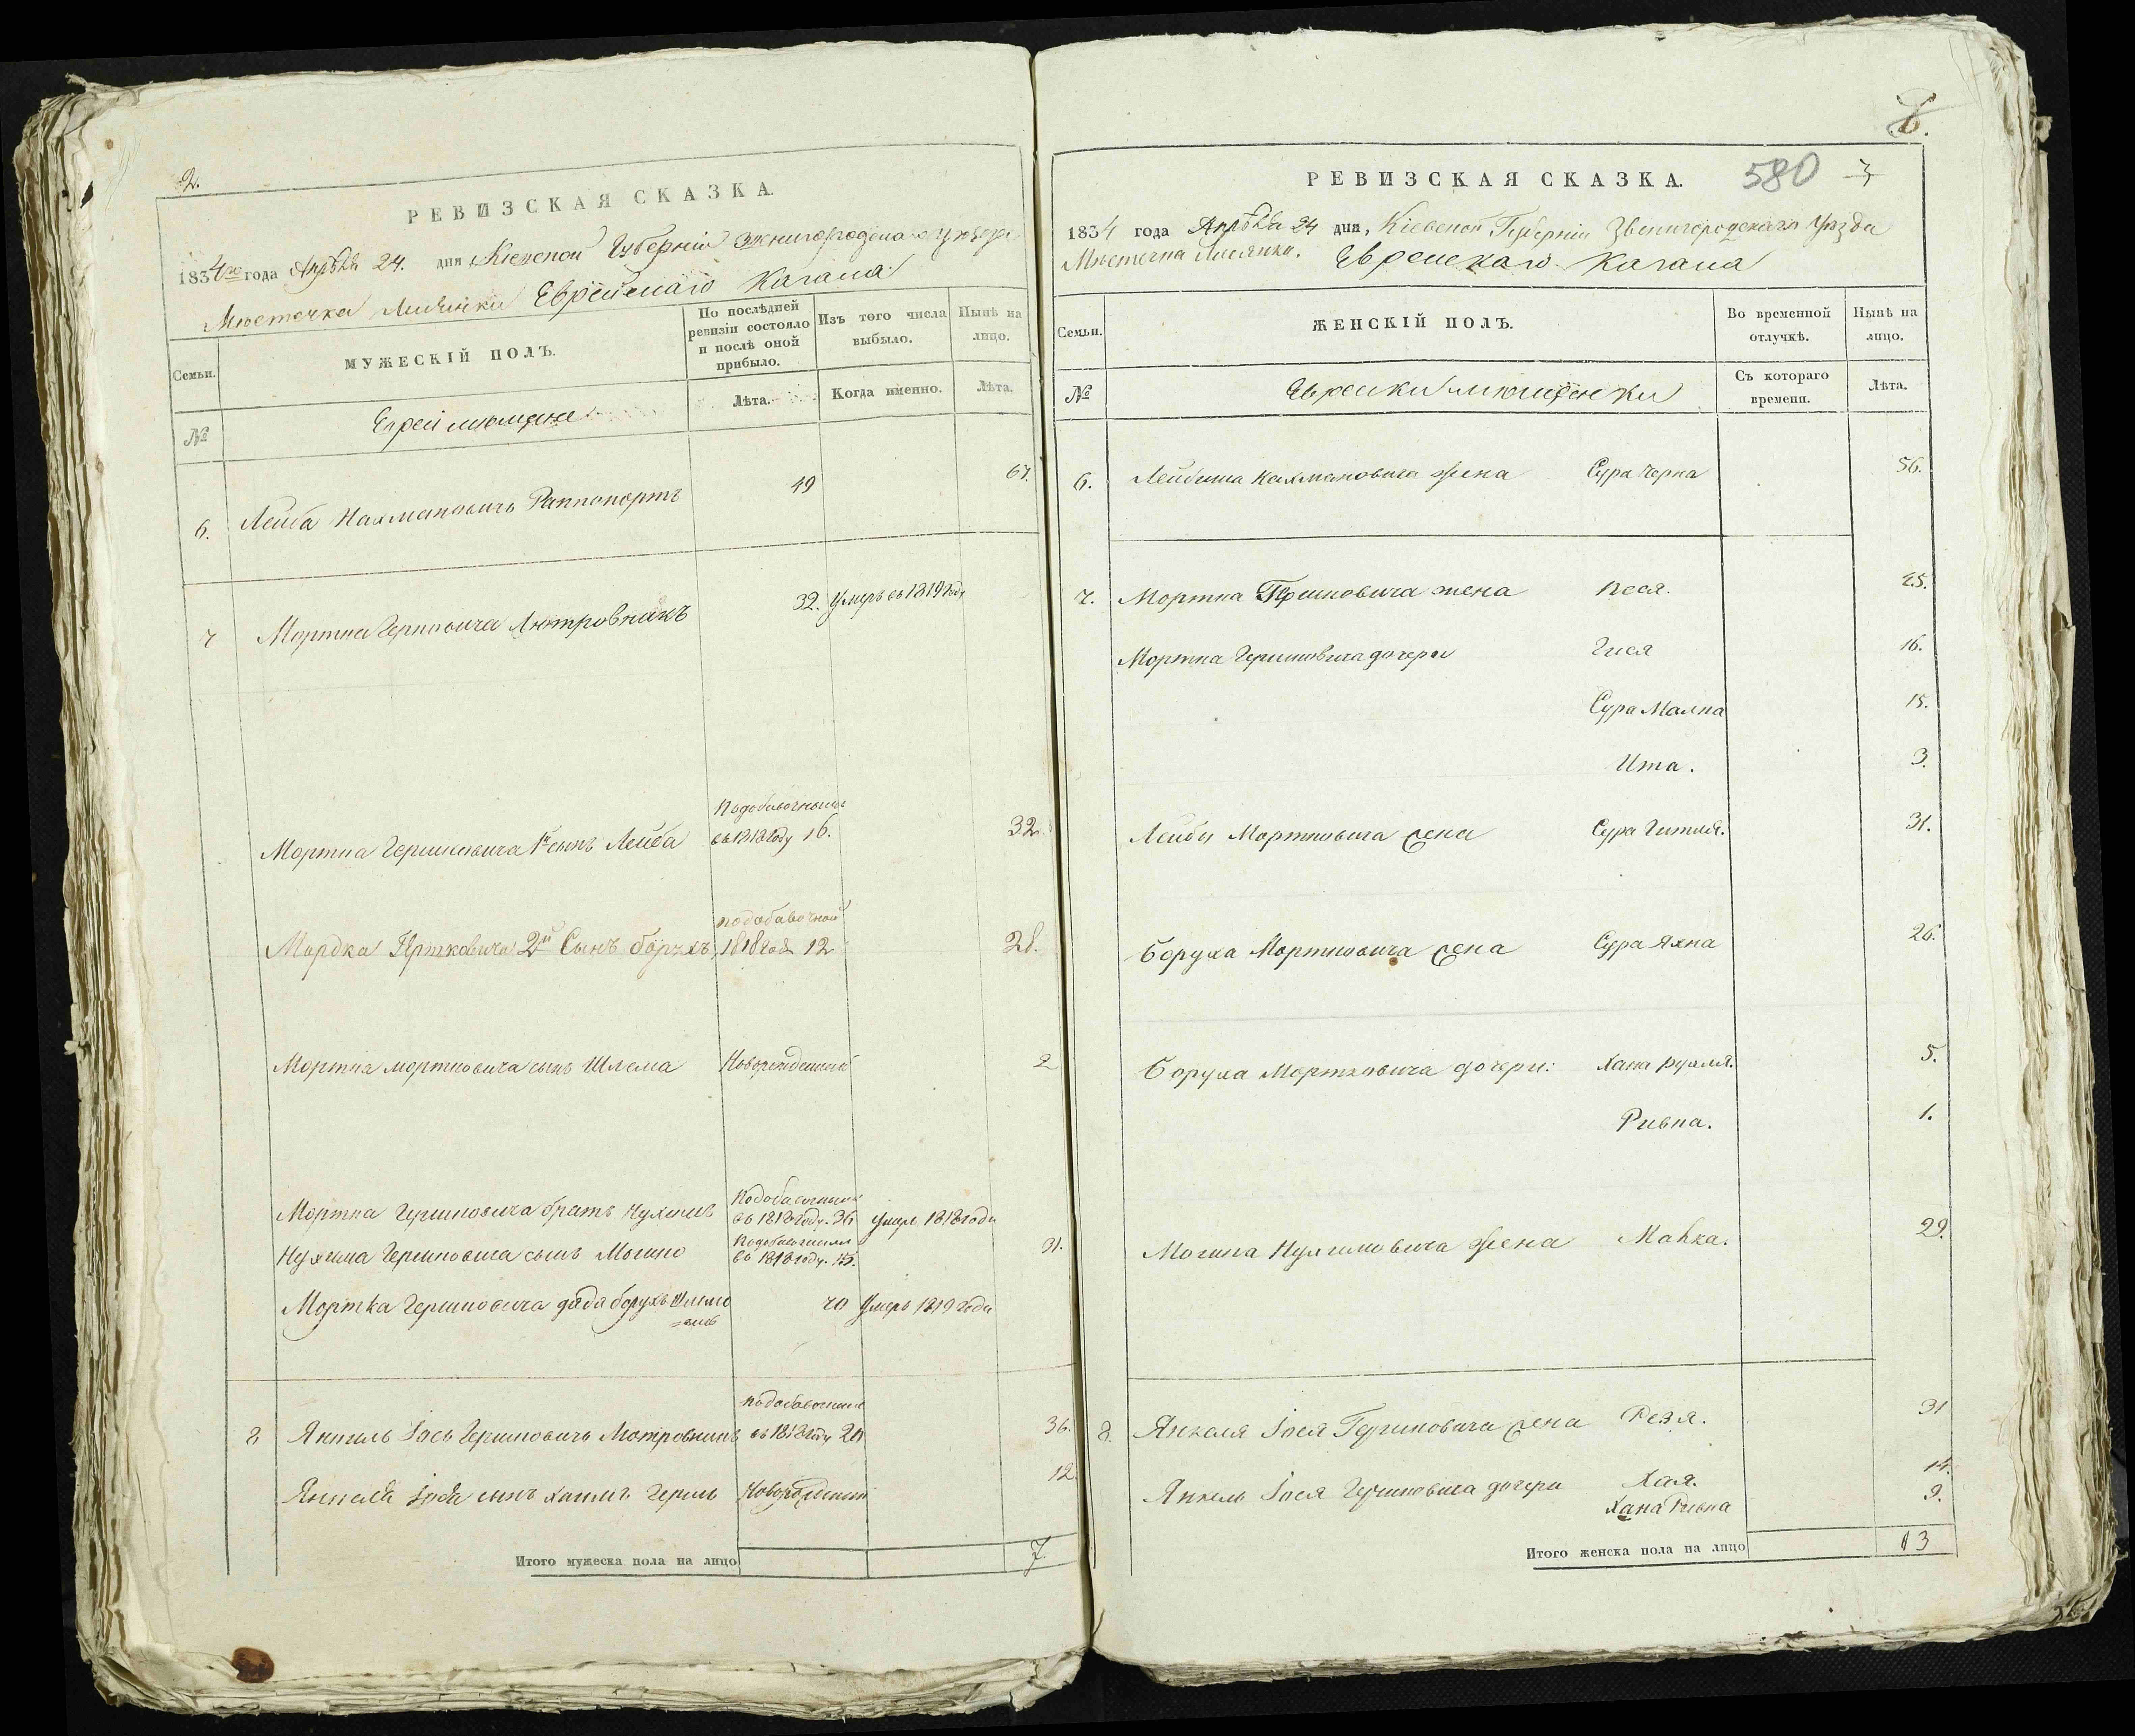 2.
РЕВИЗСКАЯ СКАЗКА.
1834го года Апрѣля 24. дня Кіевской Губерніи Звенигородскаго уѣзда
Мѣстечка Лисянки Еврейскаго Кагала
Семьи.
МУЖЕСКІЙ ПОЛЪ.
По послѣдней ревизіи состояло и послѣ оной прибыло.
Изъ того числа выбыло.
Нынѣ на лицо.
№
Евреи мѣщане
Лѣта.
Когда именно.
Лѣта.
6. Лейба Нахмановичь Раппопортъ 49 67.
7 Мортка Гершковича Лютровникъ 32. Умеръ въ 1819 году
Подобавочнымъ
Мортка Гершковича 1й сынъ Лейба въ 1818 году 16. 32.
подобавочной
Мордка Гершковича 2й Сынъ борухъ 1818 года 12 28.
Мортка мортковича сынъ Шлема Новорожденный 2
Подобавочнымъ
Мортка Гершковича братъ Нухимъ въ 1818 году. 36 умеръ 1818 года
Подобавочнымъ
Нухима Гершковича сынъ Мошко въ 1818 году. 15. 31.
Мортка Гершковича дядя борухъ Шлемо
=вичь 70 Умеръ 1819 года
подобавочнымъ
8 Янкель Іось Гершковичь Лютровникъ въ 1818 году 20 36.
Янкеля Іося сынъ хаимъ Гершъ Новорожденный 12
Итого мужеска пола на лицо 7
8.
РЕВИЗСКАЯ СКАЗКА.
580
7
1834 года Апрѣля 24 дня, Кіевской Губерніи Звенигородскаго Уѣзда
Мѣстечка Лисянки. Еврейскаго Кагала
Семьи.
ЖЕНСКІЙ ПОЛЪ.
Во временной отлучкѣ.
Нынѣ на лицо.
№
Еврейки мѣщанки
Съ котораго времени.
Лѣта.
6. Лейбиша Нахмановича жена Сура Черна 56.
7. Мортка Гершковича жена Песя. 45.
Мортка Гершковича дочери Гися 16.
Сура Малка 15.
Ита. 3.
Лейбы Мортковича жена Сура Гитля. 31.
Боруха Мортковича жена Сура Яхна 26.
Боруха Мортковича дочери: Хана рухля. 5.
Ривка. 1.
Мошка Нухимовича жена Манка. 29.
8. Янкеля Іося Гершковича жена Резя. 31
Янкель Іося Гершковича дочери Хая. 14.
Хана Ривка 9.
Итого женска пола на лицо 13